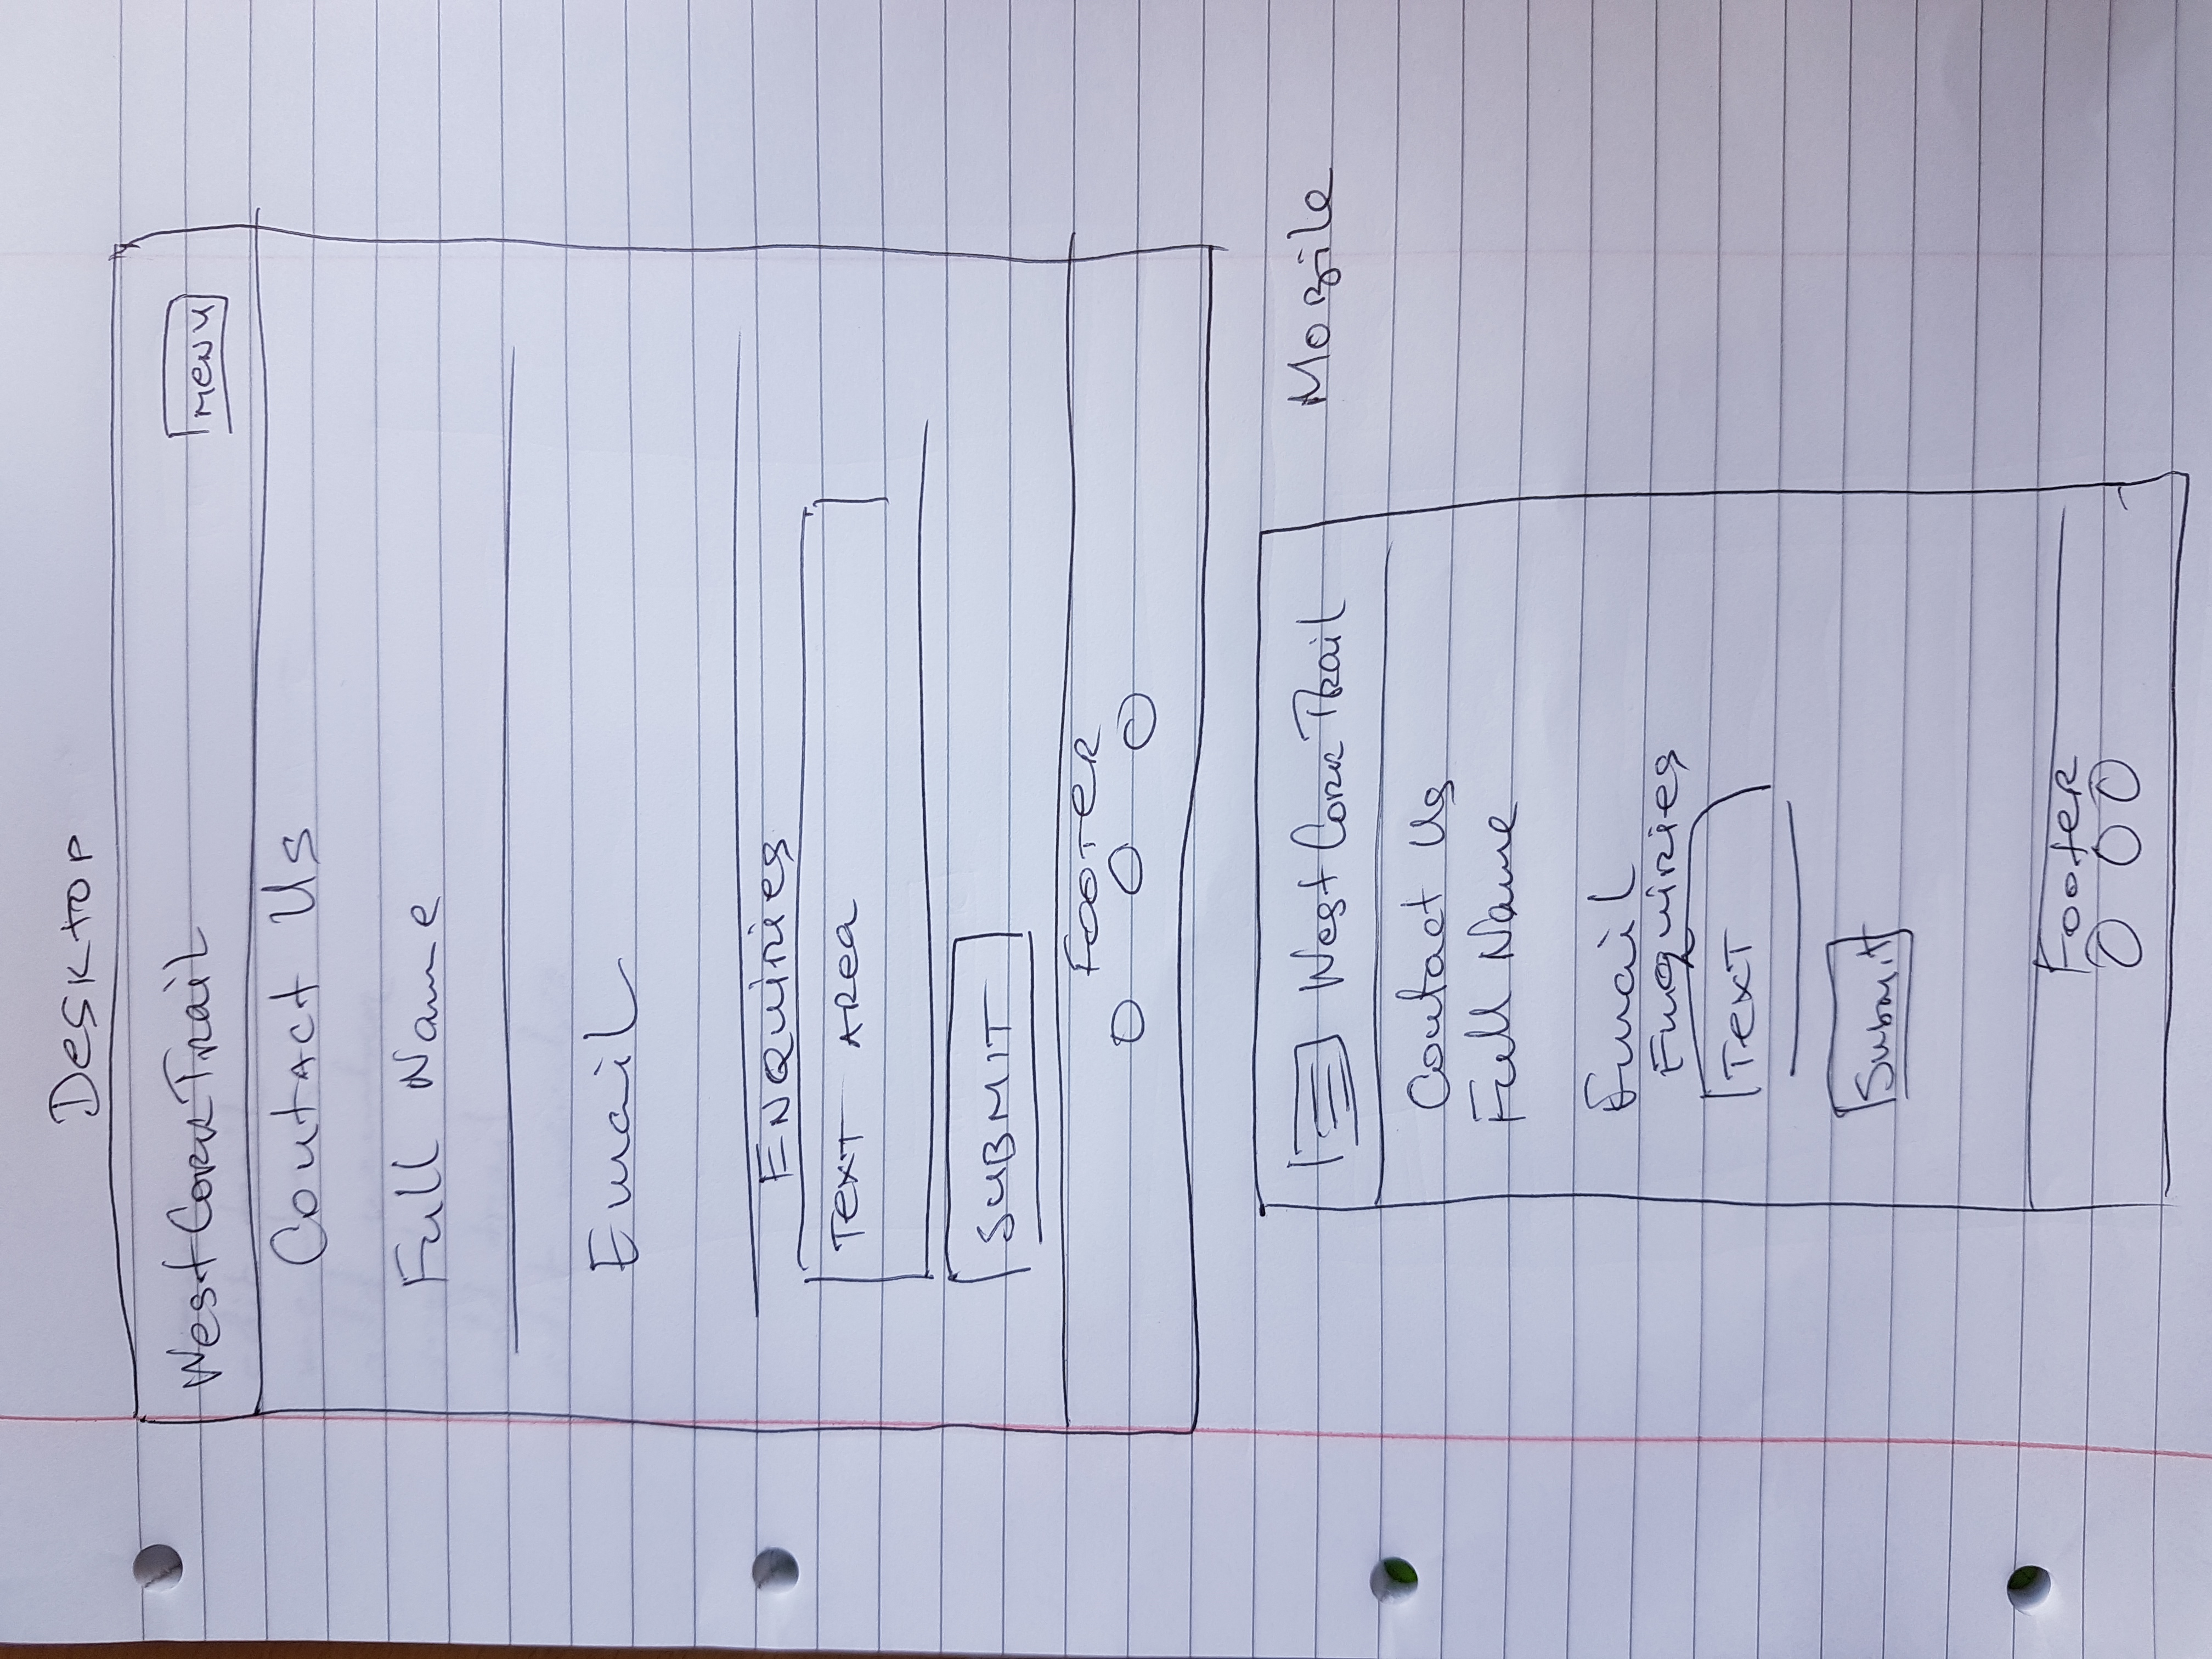 Desktop
West Cork Trail MENU
Contact Us
Full Name
Email
ENQuiries
Text Area
SUBMIT
Footer
West Cork Trail Mobile
Contact Us
Full Name
Email
Enquiries
Text
Submit
Footer